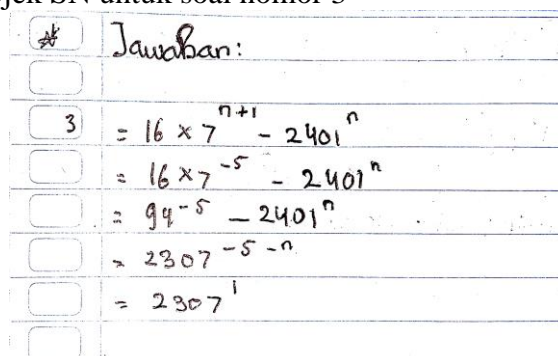 jek SN untuk soal nomor 3
Jawaban:
3 = 16 × 7^{n+1} - 2401^n
= 16 × 7^{-5} - 2401^n
= 94^{-5} - 2401^n
= 2307^{-5-n}
= 2307^1